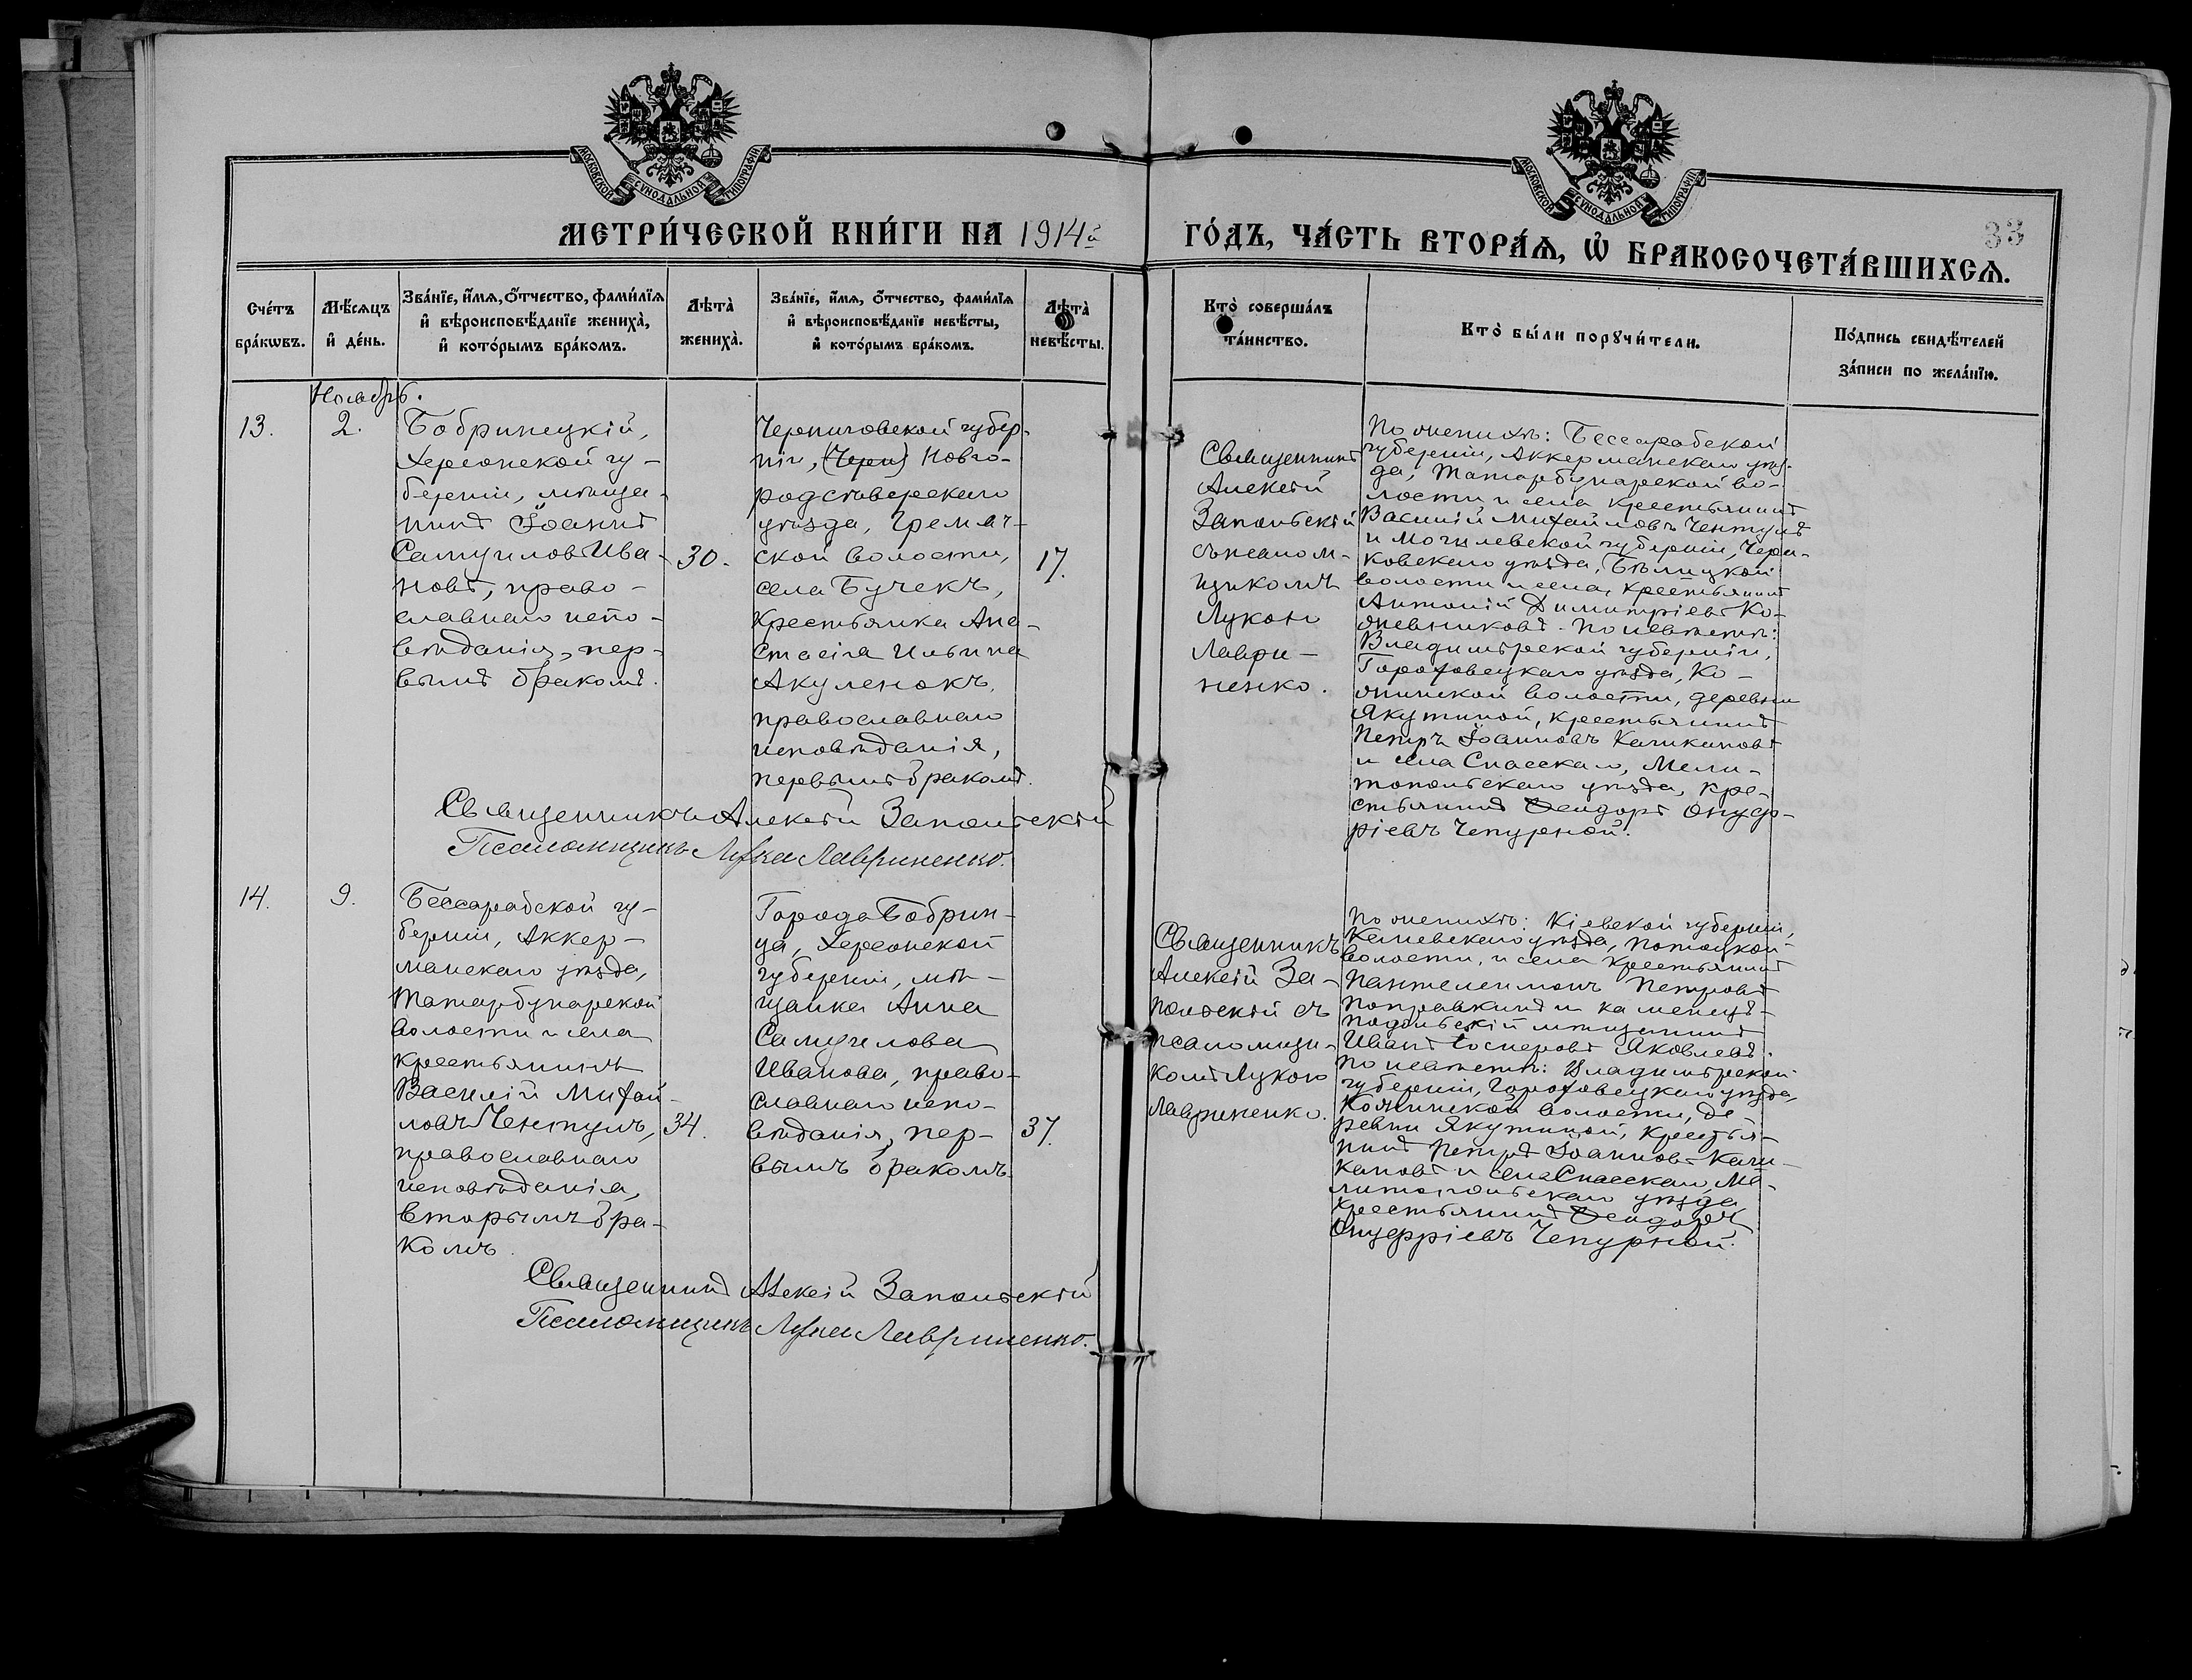 МОСКОВСКОЙ СѴНОДАЛЬНОЙ ТИПОГРАФІИ
МОСКОВСКОЙ СѴНОДАЛЬНОЙ ТИПОГРАФІИ
МЕТРИ́ЧЕСКОЙ КНИ́ГИ НА 1914й
ГО́ДЪ, ЧА́СТЬ ВТОРА́Ѧ, Ѡ҆ БРАКОСОЧЕТА́ВШИХСѦ.
33
Сче́тъ
бра́кѡвъ.
Мѣ́сѧцъ
и҆ де́нь.
Зва́нїе, и҆́мѧ, ѻ҆́тчество, фами́лїѧ
и҆ вѣроисповѣ́данїе жениха̀,
и҆ кото́рымъ бра́комъ.
Лѣта̀
жениха̀.
Зва́нїе, и҆́мѧ, ѻ҆́тчество, фами́лїѧ
и҆ вѣроисповѣ́данїе невѣ́сты,
и҆ кото́рымъ бра́комъ.
Лѣта̀
невѣ́сты.
Кто̀ соверша́лъ
та́инство.
Кто̀ бы́ли порꙋчи́тели.
По́дпись свидѣ́телей
за́писи по жела́нїю.
Ноябрь.
13.
2.
Бобринецкій,
Херсонской гу-
берніи, мѣща-
нинъ Іоаннъ
Самуиловъ Ива-
новъ, право-
славнаго испо-
вѣданія, пер-
вымъ бракомъ.
30.
Черниговской губер-
ніи, (Черн) Новго-
родсѣверскаго
уѣзда, Гремяч-
ской волости,
села Бучекъ,
крестьянка Ана-
стасія Ильина
Акуленокъ,
православнаго
исповѣданія,
первымъ бракомъ.
17.
Священникъ
Алексій
Запольскій
съ псалом-
щикомъ
Лукою
Лаври-
ненко.
По женихѣ: Бессарабской
губерніи, Аккерманскаго уѣз-
да, Татарбунарской во-
лости и села крестьянинъ
Василій Михайловъ Чентулъ
и Могилевской губерніи, Чери-
ковскаго уѣзда, Бѣлицкой
волости и села, крестьянинъ
Антоній Димитріевъ Ко-
жевниковъ. По невѣстѣ:
Владимірской губерніи,
Гороховецкаго уѣзда, Ко-
жинской волости, деревни
Якутиной, крестьянинъ
Петръ Іоанновъ Качикановъ
и села Спасскаго, Мели-
топольскаго уѣзда, кре-
стьянинъ Ѳеодоръ Онуф-
ріевъ Чепурной.
Священникъ Алексій Запольскій
Псаломщикъ Лука Лавриненко.
14.
9.
Бессарабской гу-
берніи, Аккер-
манскаго уѣзда,
Татарбунарской
волости и села
крестьянинъ
Василій Михай-
ловъ Чентулъ,
православнаго
исповѣданія,
вторымъ бра-
комъ.
34.
Города Бобрин-
ца, Херсонской
губерніи, мѣ-
щанка Анна
Самуилова
Иванова, право-
славнаго испо-
вѣданія, пер-
вымъ бракомъ.
37.
Священникъ
Алексій За-
польскій съ
псаломщи-
комъ Лукою
Лавриненко.
По женихѣ: Кіевской губерніи,
Каневскаго уѣзда, Потоцкой
волости, и села крестьянинъ
Пантелеимонъ Петровъ
Поправкинъ и каменецъ-
подольскій мѣщанинъ
Иванъ Яковлевъ.
По невѣстѣ: Владимірской
губерніи, Гороховецкаго уѣзда,
Кожинской волости, де-
ревни Якутиной, крестья-
нинъ Петръ Іоанновъ Качи-
кановъ и села Спасскаго, Ме-
литопольскаго уѣзда
крестьянинъ Ѳеодоръ
Онуфріевъ Чепурной.
Священникъ Алексій Запольскій
Псаломщикъ Лука Лавриненко.